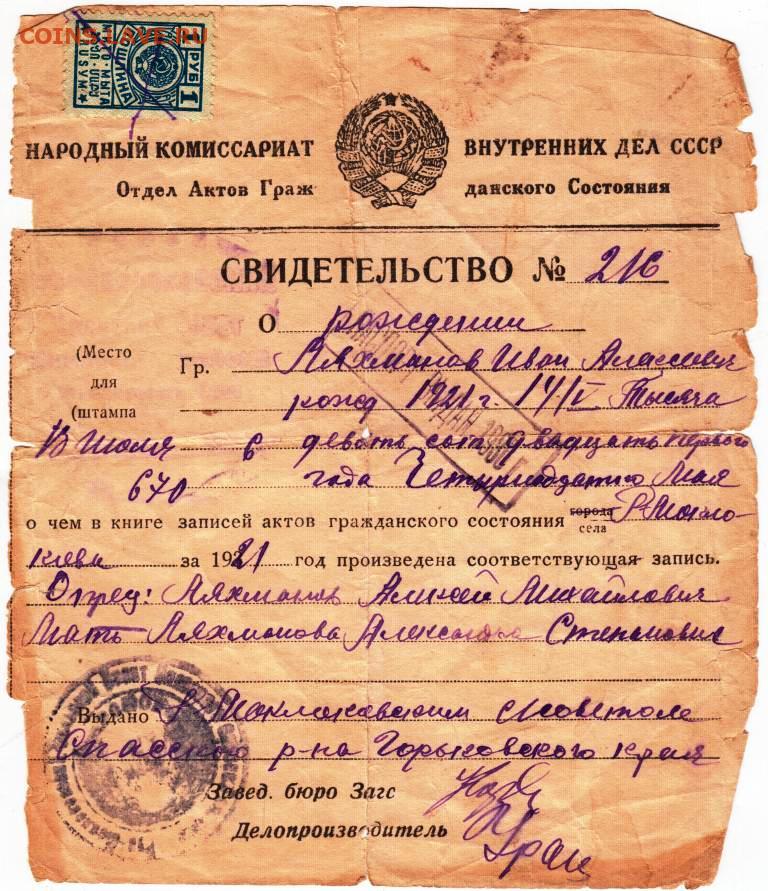 COINS.LAVE.RU
1 РУБ 1
НАРОДНЫЙ КОМИССАРИАТ ВНУТРЕННИХ ДЕЛ СССР
Отдел Актов Граж данского Состояния
СВИДЕТЕЛЬСТВО № 216
О рождении
(Место для (штампа
Гр. Ляхманов Иван Алексеевич
рожд 1921 г. 14/V Тысяча
13 июля 6 девять сот двадцать первого
670 года Четырнадцатого Мая
о чем в книге записей актов гражданского состояния города села Р-Макло-
кова за 1921 год произведена соответствующая запись.
Отец: Ляхманов Алексей Михайлович
Мать Ляхманова Александра Степановна
Выдано Р Маклаковским с/советом
Спасского р-на Горьковского края
Завед. бюро Загс
Делопроизводитель